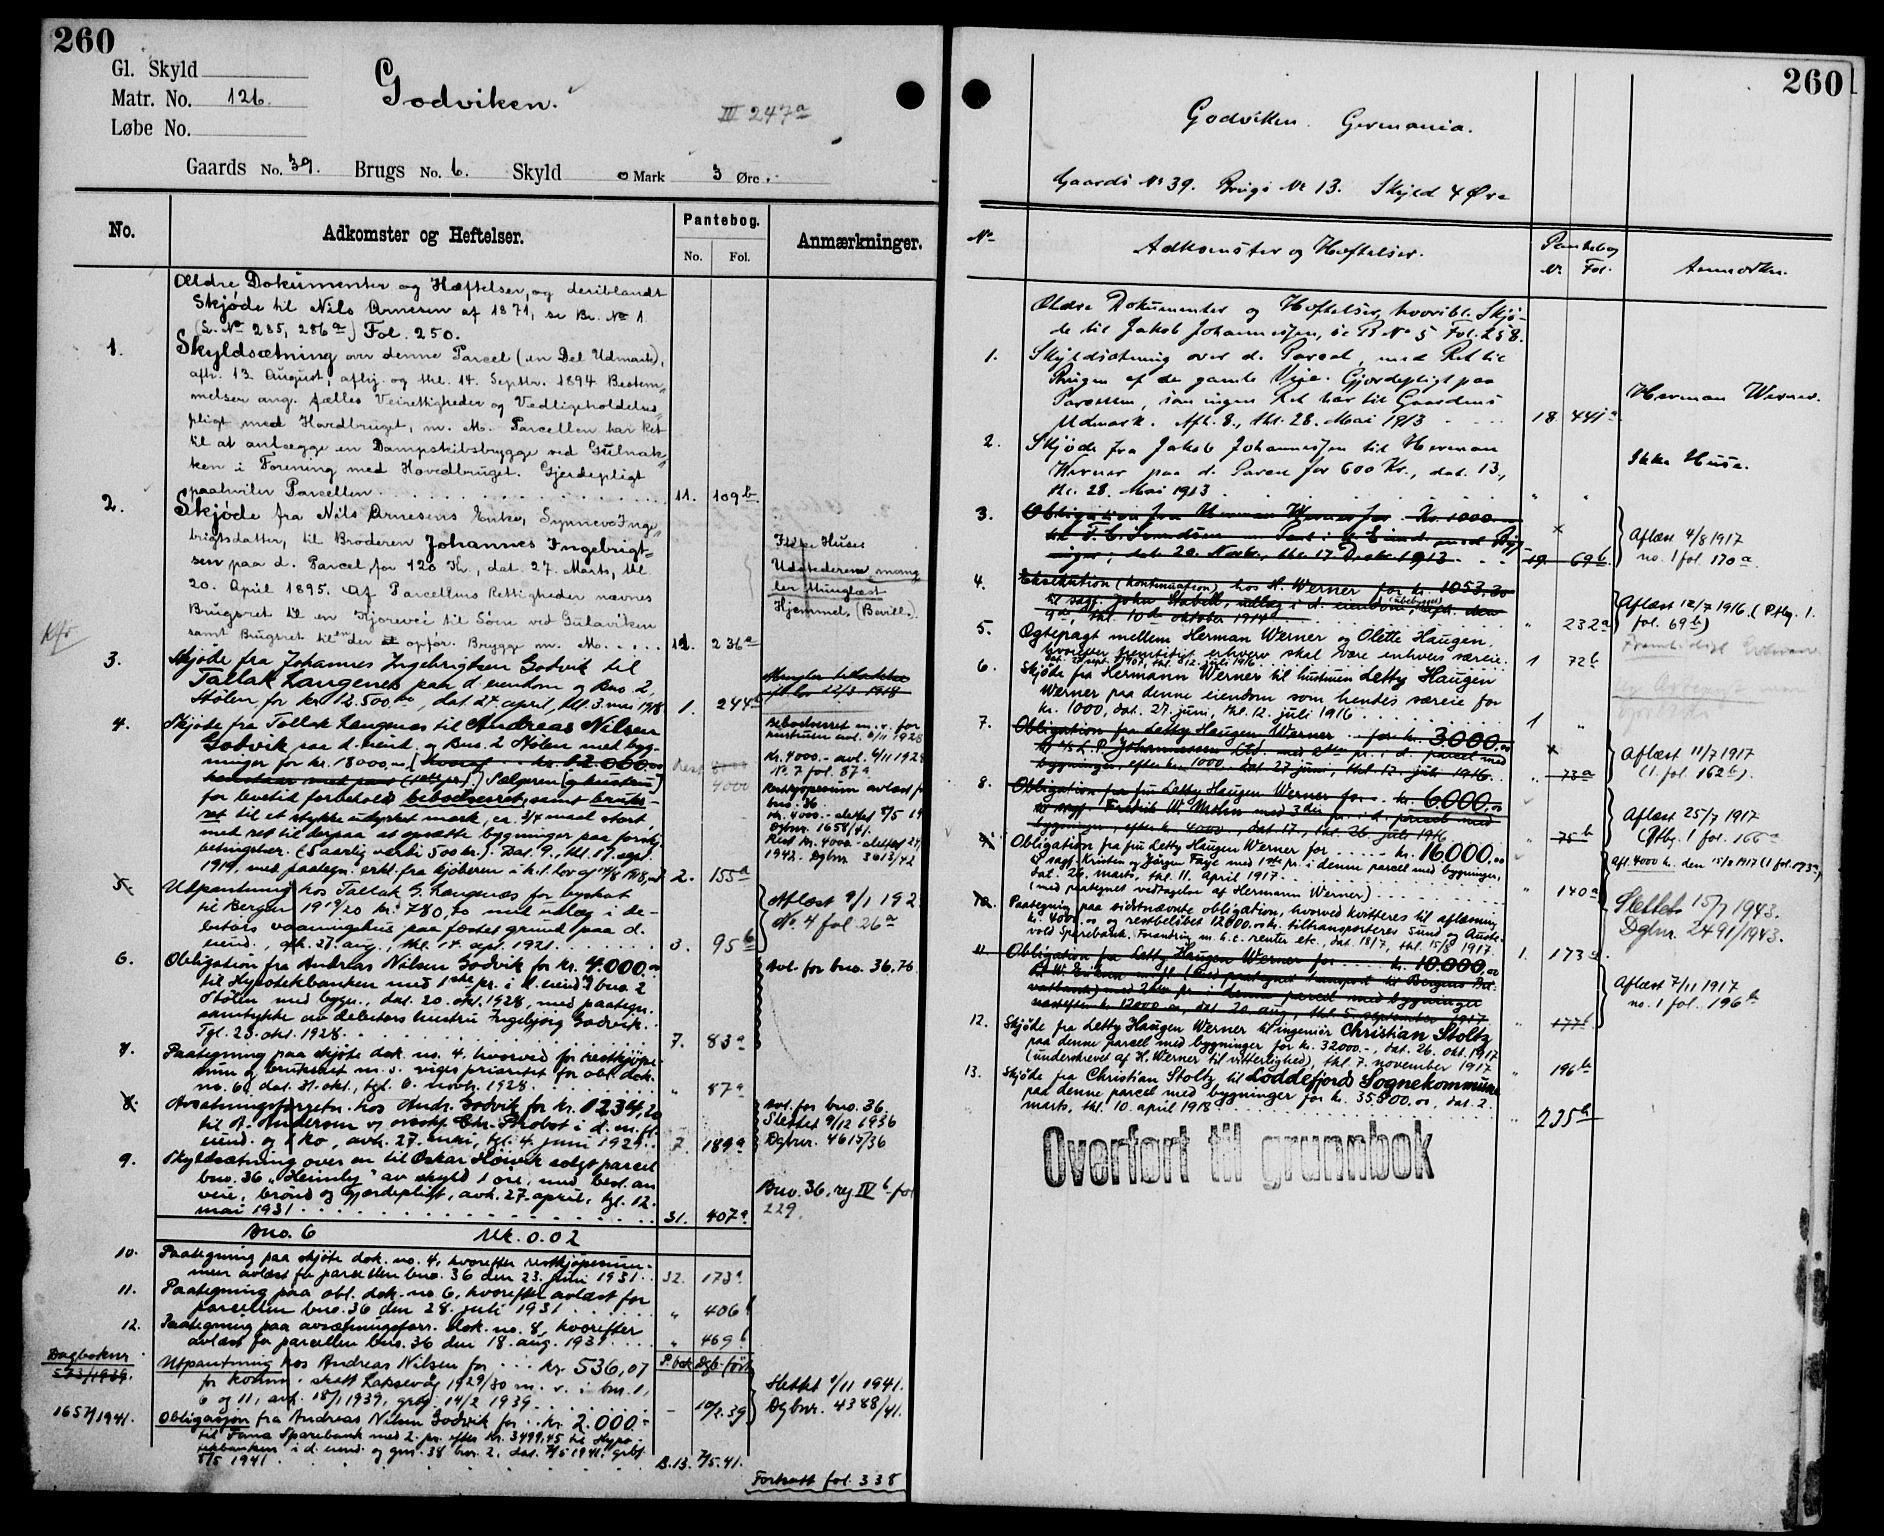 260
Gl. Skyld
Matr. No. 126.
Løbe No.
Godviken.
III 247a
Gaards No. 39. Brugs No. 6. Skyld 0 Mark 3 Øre.
No.
Adkomster og Heftelser.
Pantebog.
No. Fol.
Anmærkninger.
Ældre Dokumenter og Hæftelser, og deriblandt
Skjøde til Nils Arnesen af 1871, se Br. No 1
(L. No 285, 286a) Fol. 250.
1. Skyldsætning over denne Parcel (en Del Udmark),
afh. 13 August, afhj. og thl. 14. Septbr. 1894 Bestem-
melser ang. fælles Veirettigheder og Vedligeholdelses-
pligt med Hovedbruget, m. M. Parcellen har Ret
til at anlægge en Dampskibsbrygge ved
i Forening med Hovedbruget. Gjerdepligt
paahviler Parcellen. 11. 109b.
2. Skjøde fra Nils Arnesens Enke, Synneve Inge-
brigtsdatter, til Broderen Johannes Ingebrigt-
sen paa d. Parcel, for 120 Kr., dat. 27. Marts, thl.
20. April 1895. Af Parcellens Rettigheder nævnes
Brugsret til en Kjørevei til Søen ved Gulaviken
samt Brugsret til en der opfør. Brygge m. M. 236a
Ikke Huse.
Udstederens mang-
ler thinglæst
Hjemmel. (Bevill.)
3. Skjøde fra Johannes Ingebrigtsen Godvik til
Tallak Langenes paa d. eiendom og Bno 2,
Stølen for kr. 12.500,00, dat. 27. april, thl. 3. mai 1918 1. 244a
4. Skjøde fra Tallak Langenes til Andreas Nilsen
Godvik paa d. eiend. og Bno. 2 Stølen med byg-
ninger for kr. 18000,00 (hvoraf kr. 12.000,00
Sælgeren (og hustru)
for levetid forbeholdt beboelsesret, samt bruks-
ret til et stykke udyrket mark, ca. 3/4 maal stort
med ret til derpaa at opsætte bygninger paa forsk.
betingelser. (5 aarlig værdi 500 kr.). Dat. 9., thl. 17. sept.
1919, med paategn. erkl. fra kjøberen i h. t. lov af 2. 155a
Kr. 4000.- avl. 6/11 1928
No. 7 fol. 87a
Restkjøpesum avlæst for
bno. 36
Dgbnr. 1658/41.
Rest kr. 4000.- slettet
1942. Dgbnr. 3613/42
5. Utpantning hos Tallak G. Langenes for byskat
til Bergen 1919/20 kr. 780,70 med utlæg i de-
bitors vaaningshus paa fæstet grund paa d.
eiend., afh. 27. aug., thl. 14. apr. 1921. 3. 95b
Aflæst 9/1 192
No. 4 fol. 26a
6. Obligation fra Andreas Nilsen Godvik for kr. 4.000,00
til Hypotekbanken med 1ste pr. i d. eiend. og bno. 2
Stølen med bygn., dat. 20. okt. 1928, med paategn.
samtykke av debitors hustru Ingebjørg Godvik.
Tgl. 23. okt. 1928. 7. 83a
Avl. for bno. 36, 76
7. Paategning paa skjøte dok. no. 4, hvorved for restkjøpe-
sum og bruksret m. v. viges prioritet for obl. dok.
no. 6, dat. 31. okt., tgl. 6. novb. 1928. " 87a
8. Avsætningsforretn. hos Andr. Godvik for kr. 1234,20
til A. Andersen og Chr. Probot i d. m. fl.
eiend. og øko, avh. 27. mai, tgl. 4. juni 1929. 7. 189a
Avl. for bno. 36.
Slettet 9/12 1936
Dgbnr. 4615/36
9. Skyldsætning over en til Oskar Høivik solgt parcel
bno. 36 "Heimly" av skyld 1 øre, med best. an
veie, brønd og gjærdeplikt, avh. 27. april, tgl. 12.
mai 1931. 31. 407a
Bno. 36, reg. IV b fol
229.
Bno. 6 Mk. 0.02
10. Paategning paa skjøte dok. no. 4, hvorefter restkjøpesum-
men avlæst fra parcellen bno. 36 den 23. juni 1931. 32. 173a
11. Paategning paa obl. dok. no 6, hvorefter avlæst for
parcellen bno. 36 den 28. juli 1931 " 406b
12. Paategning paa avsætningsforr. dok. no. 8, hvorefter
avlæst for parcellen bno. 36 den 18. aug. 1931. " 469b
Dagboknr P.bok Dgb. ført
573/1939. Utpantning hos Andreas Nilsen for kr 536,07
for komm. skatt Laksevåg 1929/30 m. v. i bnr. 1,
6 og 11, avh. 18/1 1939, grbf. 14/2 1939. - 10/2.39
Slettet 1/11 1941.
Dgbnr. 4388/41.
1657/1941. Obligasjon fra Andreas Nilsen Godvik for kr. 2.000.-
til Fana Sparebank med 2. pr. efter kr. 3499,45 til Hypo-
tekbanken i d. eiend. og gnr. 38 bnr. 2, dat. 7/5 1941. grbf.
8/5 1941. B.13. 7/5.41.
Fortsatt fol. 338
260
Godviken. Germania.
Gaards No 39. Brugs No 13. Skyld 4 Øre
No
Adkomster og Heftelser.
Pantebog
Nr. Fol.
Anmærkn.
Ældre Dokumenter og Heftelser, hvoribl. Skjø-
de til Jakob Johannessen, se B No 5 Fol. 258.
1. Skyldsætning over d. Parcel, med Ret til
Brugen af de gamle Veie. Gjerdepligt paa
Parcellen, som ingen Ret har til Gaardens
Udmark. Afh. 8., thl. 28. Mai 1913 18. 441a
Herman Werner.
2. Skjøde fra Jakob Johannessen til Herman
Werner paa d. Parcel for 600 Kr., dat. 13.,
thl. 28. Mai 1913 " "
Ikke Huse.
3. Obligation fra Herman Werner for Kr. 1000
til F. C. Svendsen m. Pant i d. Eiend. med Byg-
ninger, dat. 20. Novbr., thl. 17 Decbr 1913 19. 69b.
Aflæst 4/8 1917
no. 1 fol. 170a
4. Eksekution (kontinuation) hos H. Werner for kr. 1053,30
til sagf. John Stabell, udlæg i d. eiendom (ubebygget), afh. den
9de, thl. 10de oktober 1914 " 232a
Aflæst 12/7 1916. (Ptbg. 1.
fol. 69b)
5. Ægtepagt mellem Herman Werner og Olette Haugen,
hvorefter fremtidigt erhverv skal være enhvers særeie.
dat. sept. 1907, thl. 12. juli 1916 1 72b
6. Skjøde fra Hermann Werner til hustruen Letty Haugen
Werner paa denne eiendom som hendes særeie for
kr. 1000, dat. 27. juni, thl. 12. juli 1916 1 "
7. Obligation fra Letty Haugen Werner for kr. 3000,00
til A/S L. P. Johannessen med pr. i d. parcel med
bygninger, efter kr. 1000. dat 27 juni, thl. 12. juli 1916. " 73a
Aflæst 11/7 1917
(1. fol. 162b).
8. Obligation fra fru Letty Haugen Werner for kr. 6000,00
til sagf. Fredrik W. Mohn med 3die pr. i d. parcel med
bygninger, efter kr. 4000, dat 17., thl. 26 juli 1916 " 75b
Aflæst 25/7 1917
(Ptbg. 1 fol. 166a
9. Obligation fra fru Letty Haugen Werner for kr. 16.000,00
til sagf. Kristen og Jørgen Faye med 1ste pr. i denne parcel med bygninger,
dat. 26. marts, thl. 11. april 1917
(med paategnet vedtagelse af Hermann Werner) " 140a
Afl. 4000 kr. den 15/8 1917 (1 fol. 173a)
Slettet 15/7 1943.
Dgbnr. 2491/1943.
10. Paategning paa sidstnævnte obligation, hvorved kvitteres til aflæsning
kr. 4000,00 og restbeløbet 12000,00 kr. tiltransporteres Sund og Auste-
vold Sparebank. Forandring m. h. t. renter etc., dat. 18/7, thl. 15/8 1917 1. 173a
11. Obligation fra Letty Haugen Werner for kr. 10.000,00
transport til Bergens Pri-
vatbank) med 2den pr. i denne parcel med bygninger
næstefter kr. 12000,00, dat. 30. aug., thl. 5. september 1917 " 177b
Aflæst 7/11 1917
no. 1 fol. 196b
12. Skjøde fra Letty Haugen Werner til ingeniør Christian Stoltz
paa denne parcel med bygninger for kr. 32000.-, dat. 26. okt. 1917
(underskrevet af H. Werner til vitterlighed), thl. 7. november 1917 " 196b
13. Skjøde fra Christian Stoltz til Loddefjord Sognekommune
paa denne parcel med bygninger for kr. 35500.00, dat. 2.
marts, thl. 10. april 1918 " 235b
Overført til grunnbok